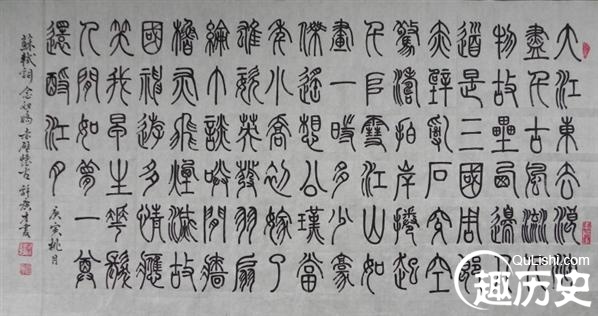 大江東去浪淘
盡千古風流人
物故壘西邊人
道是三國周郎
赤壁亂石穿空
驚濤拍岸捲起
千堆雪江山如
畫一時多少豪
傑遙想公瑾當
年小喬初嫁了
雄姿英發羽扇
綸巾談笑間牆
櫓灰飛煙滅故
國神遊多情應
笑我早生華髮
人間如夢一尊
還酹江月
庚寅桃月
蘇軾詞 念奴嬌 赤壁懷古
QuLishi.com
趣历史